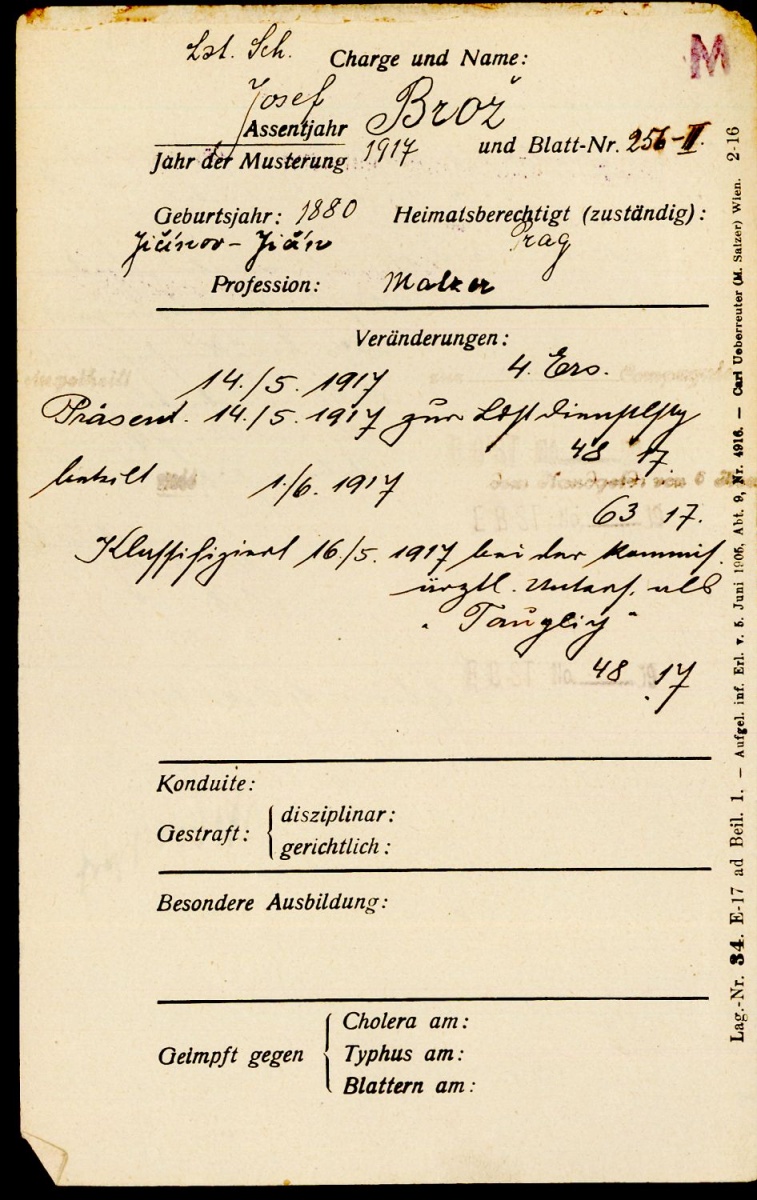 Lst. Sch. Charge und Name:
M
Josef Brož
Assentjahr
Jahr der Musterung 1917 und Blatt-Nr. 256-II.
Geburtsjahr: 1880 Heimatsberechtigt (zuständig):
Prag
Profession:
Veränderungen:
14./5. 1917 4. Ers.
Präsent. 14./5. 1917 zur
48 17
1./6. 1917
63 17.
Klassifiziert 16./5. 1917 bei der Kommiss.
ärztl. Unters. als
"Tauglich"
48 17
Konduite:
Gestraft: { disziplinar:
gerichtlich:
Besondere Ausbildung:
Geimpft gegen { Cholera am:
Typhus am:
Blattern am:
Lag.-Nr. 34. E-17 ad Beil. 1. — Aufgel. inf. Erl. v. 5. Juni 1906, Abt. 9, Nr. 4916. — Carl Ueberreuter (M. Salzer) Wien. 2-16